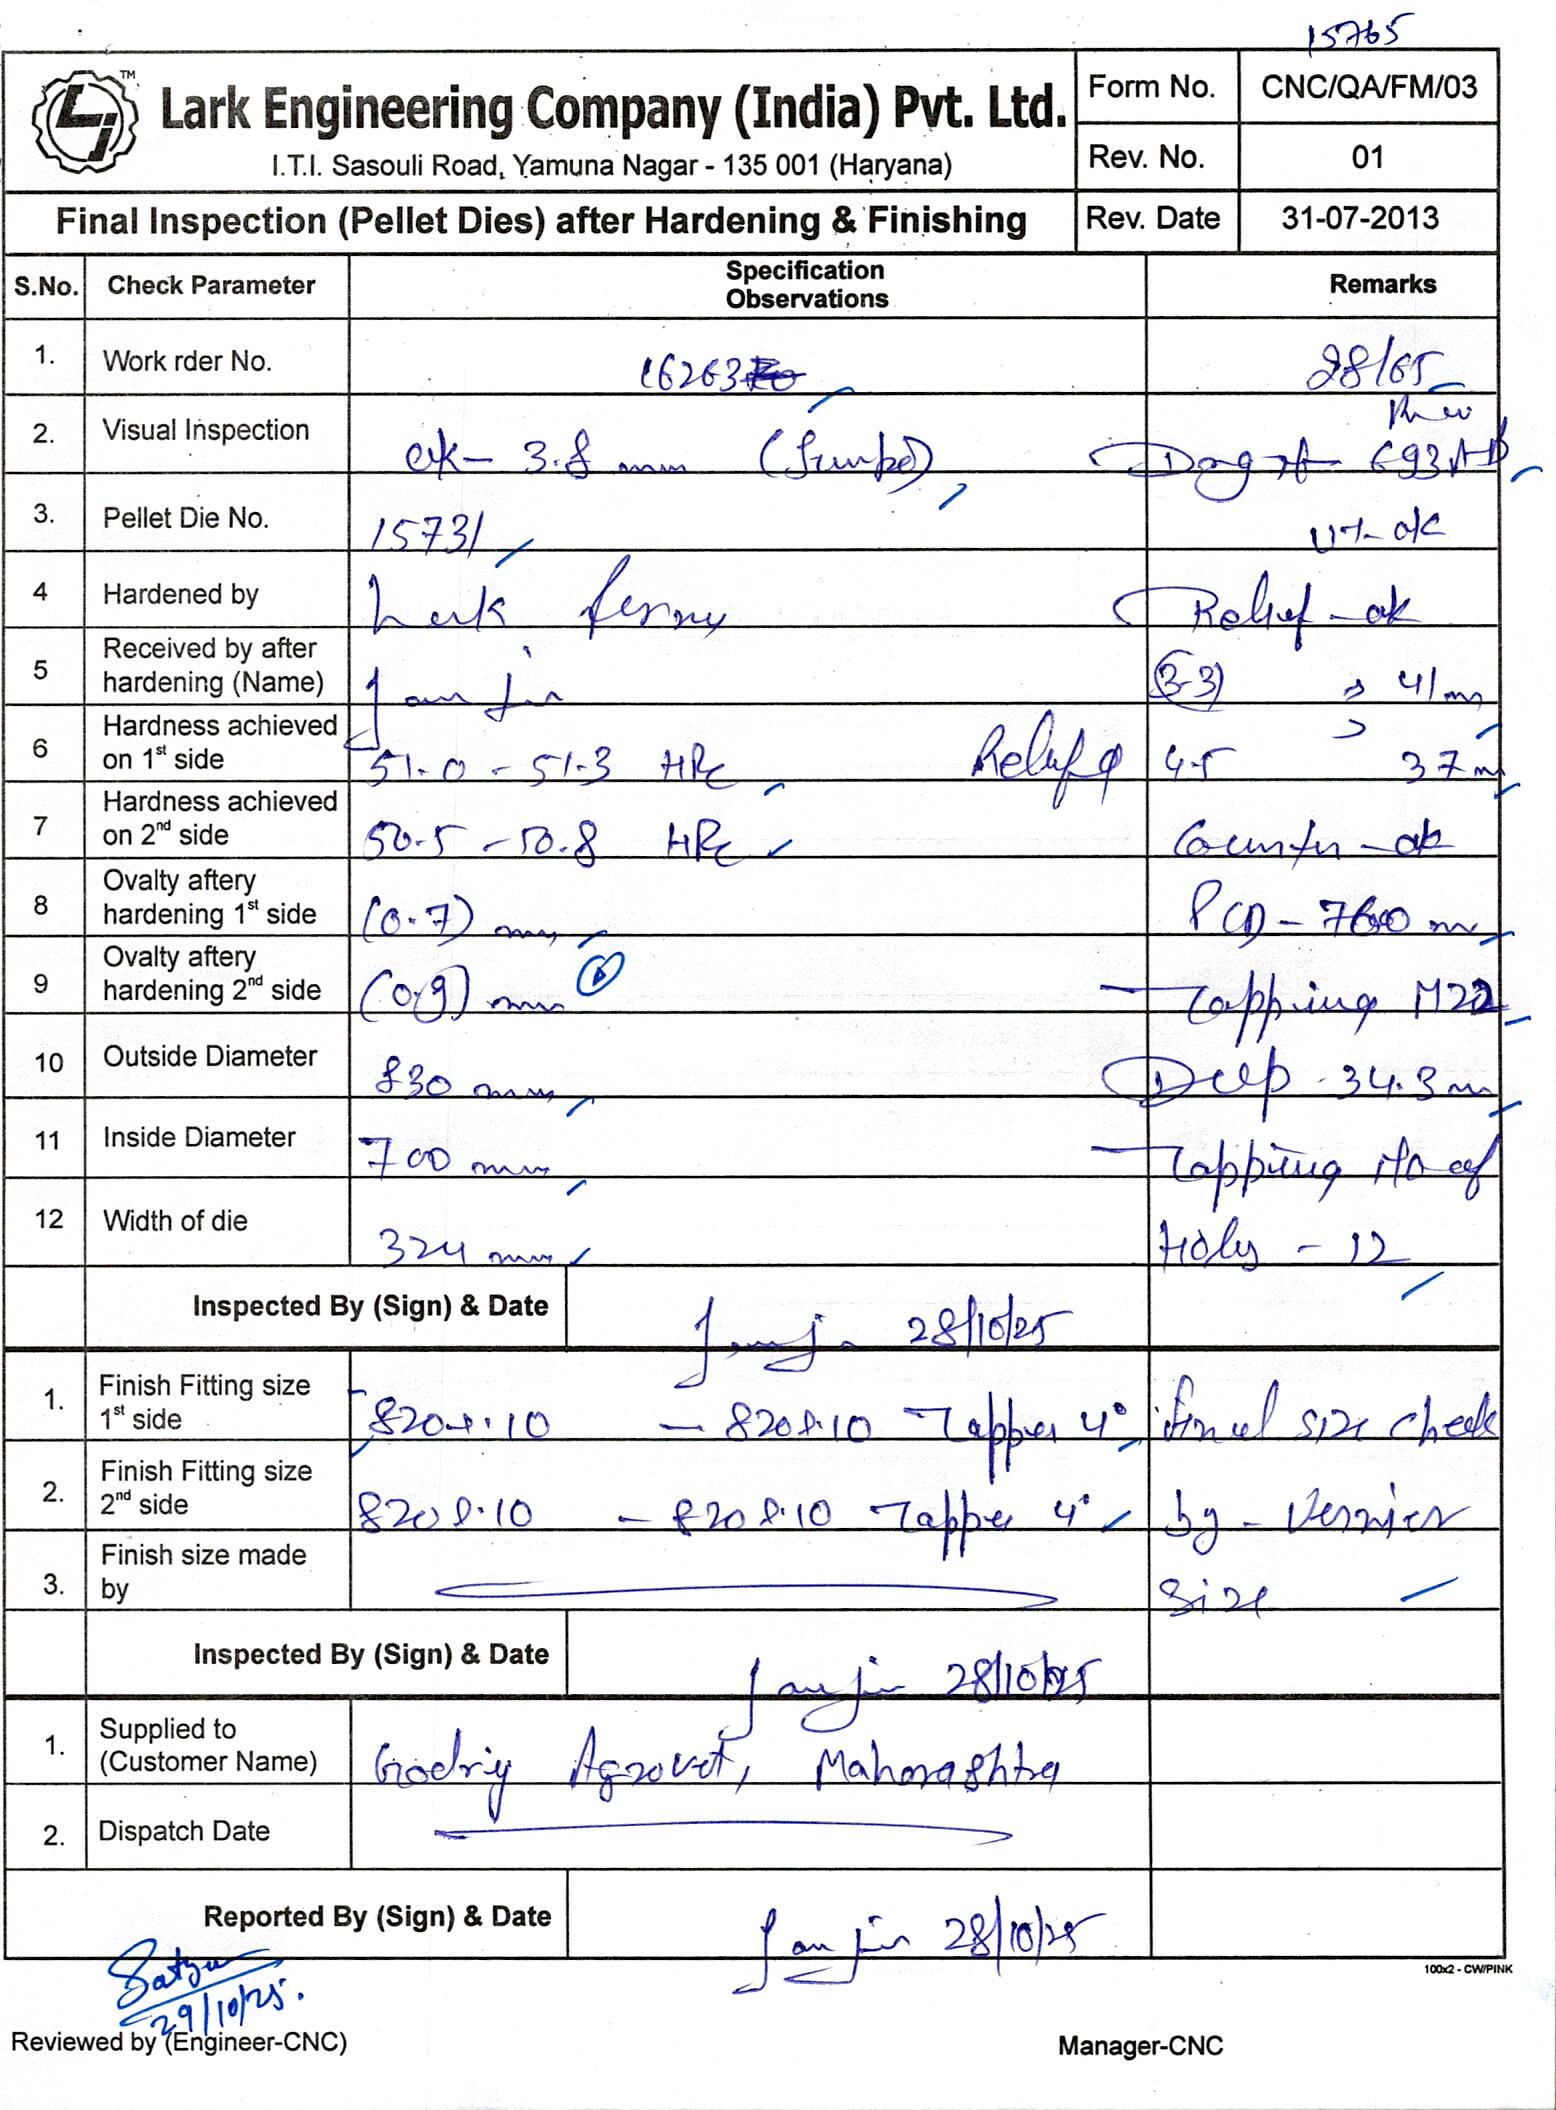 15765
Lark Engineering Company (India) Pvt. Ltd.
TM
I.T.I. Sasouli Road, Yamuna Nagar - 135 001 (Haryana)
Form No. CNC/QA/FM/03
Rev. No. 01
Final Inspection (Pellet Dies) after Hardening & Finishing
Rev. Date 31-07-2013
S.No. Check Parameter Specification Observations Remarks
1. Work rder No. 16263 28/65
2. Visual Inspection ok - 3.8 mm 693AB
3. Pellet Die No. 15731 UT- ok
4 Hardened by Lark Relief - ok
5 Received by after hardening (Name) (3-3) 41 mm
6 Hardness achieved on 1st side 51.0 - 51.3 HRC Relief φ 4.5 37 m
7 Hardness achieved on 2nd side 50.5 - 50.8 HRC Counter - ok
8 Ovalty aftery hardening 1st side (0.7) mm PCD - 760 m
9 Ovalty aftery hardening 2nd side (0.9) mm Tapping M22
10 Outside Diameter 830 mm Deep - 34.3 m
11 Inside Diameter 700 mm Tapping No of
12 Width of die 324 mm Holes - 12
Inspected By (Sign) & Date 28/10/25
1. Finish Fitting size 1st side 820 .10 - 820 .10 Tapper 4° Final size check
2. Finish Fitting size 2nd side 820 .10 - 820 .10 Tapper 4° by - Vernier
3. Finish size made by Size
Inspected By (Sign) & Date 28/10/25
1. Supplied to (Customer Name) Godrej Agrovet, Maharashtra
2. Dispatch Date
Reported By (Sign) & Date 28/10/25
100x2 - CW/PINK
29/10/25.
Reviewed by (Engineer-CNC)
Manager-CNC